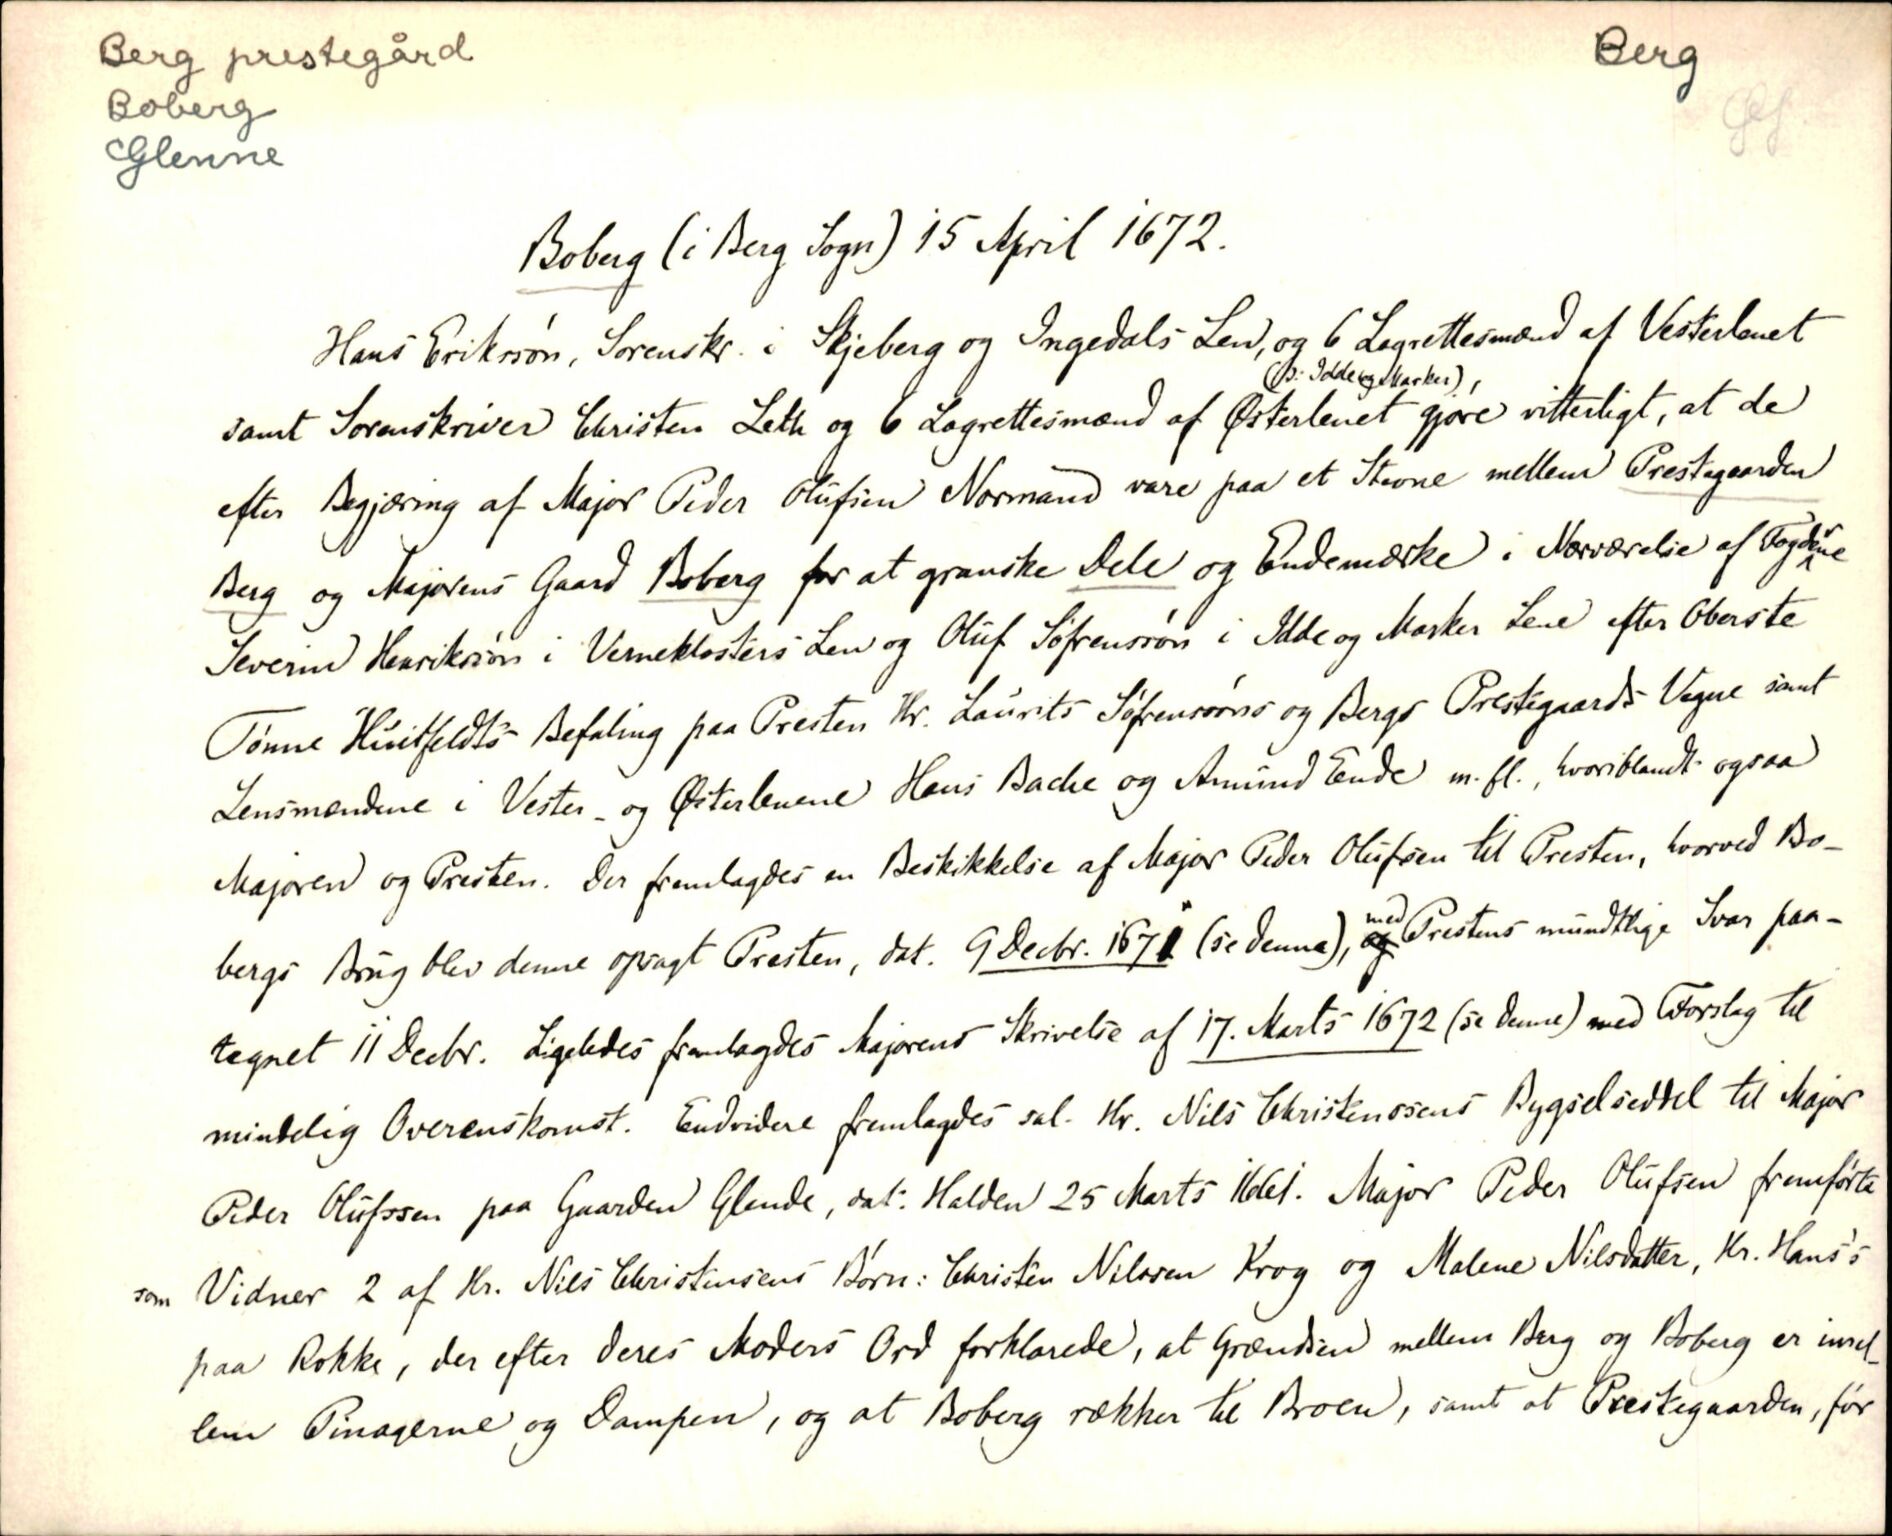 Berg prestegård
Berg
Boberg
Glenne
Boberg (i Berg Sogn) 15 April 1672.
Hans Erikssön, Sorenskr. i Skjeberg og Ingedals Len, og 6 Lagrettesmænd af Vesterlenet
(ɔ: Idde og Marker),
samt Sorenskriver Christen Leth og 6 Lagrettesmænd af Østerlenet gjöre vitterligt, at de
efter Begjæring af Major Peder Olufsen Normand vare paa et Stevne mellem Prestegaarden
Berg og Majorens Gaard Boberg for at granske Dele og Endemærke i Nærværelse af Fogderne
Severin Henrikssön i Verneklosters Len og Oluf Söfrenssön i Idde og Marker Lene efter Oberste
Tönne Huitfeldts Befaling paa Presten Hr. Laurits Söfrenssöns og Bergs Prestegaards Vegne samt
Lensmændene i Vester- og Østerlenene Hans Bache og Amund Ende m. fl., hvoriblandt ogsaa
Majoren og Presten. Der fremlagdes en Beskikkelse af Major Peder Olufsen til Presten, hvorved Bo-
bergs Brug blev denne opsagt Presten, dat. 9 Decbr. 1671 (se denne), med Prestens mundtlige Svar paa-
tegnet 11 Decbr. Ligeledes fremlagdes Majorens Skrivelse af 17. Marts 1672 (se denne) med Forslag til
mindelig Overenskomst. Endvidere fremlagdes sal. Hr. Nils Christenssens Bygselseddel til Major
Peder Olufssen paa Gaarden Glende, dat. Halden 25 Marts 1661. Major Peder Olufsen fremförte
som Vidner 2 af Hr. Nils Christensens Börn: Christen Nilssen Krog og Malene Nilsdatter, Hr. Hans's
paa Rokke, der efter deres Moders Ord forklarede, at Grændsen mellem Berg og Boberg er imel-
lem Pinagerne og Dampen, og at Boberg rækker til Broen, samt at Prestegaarden, för